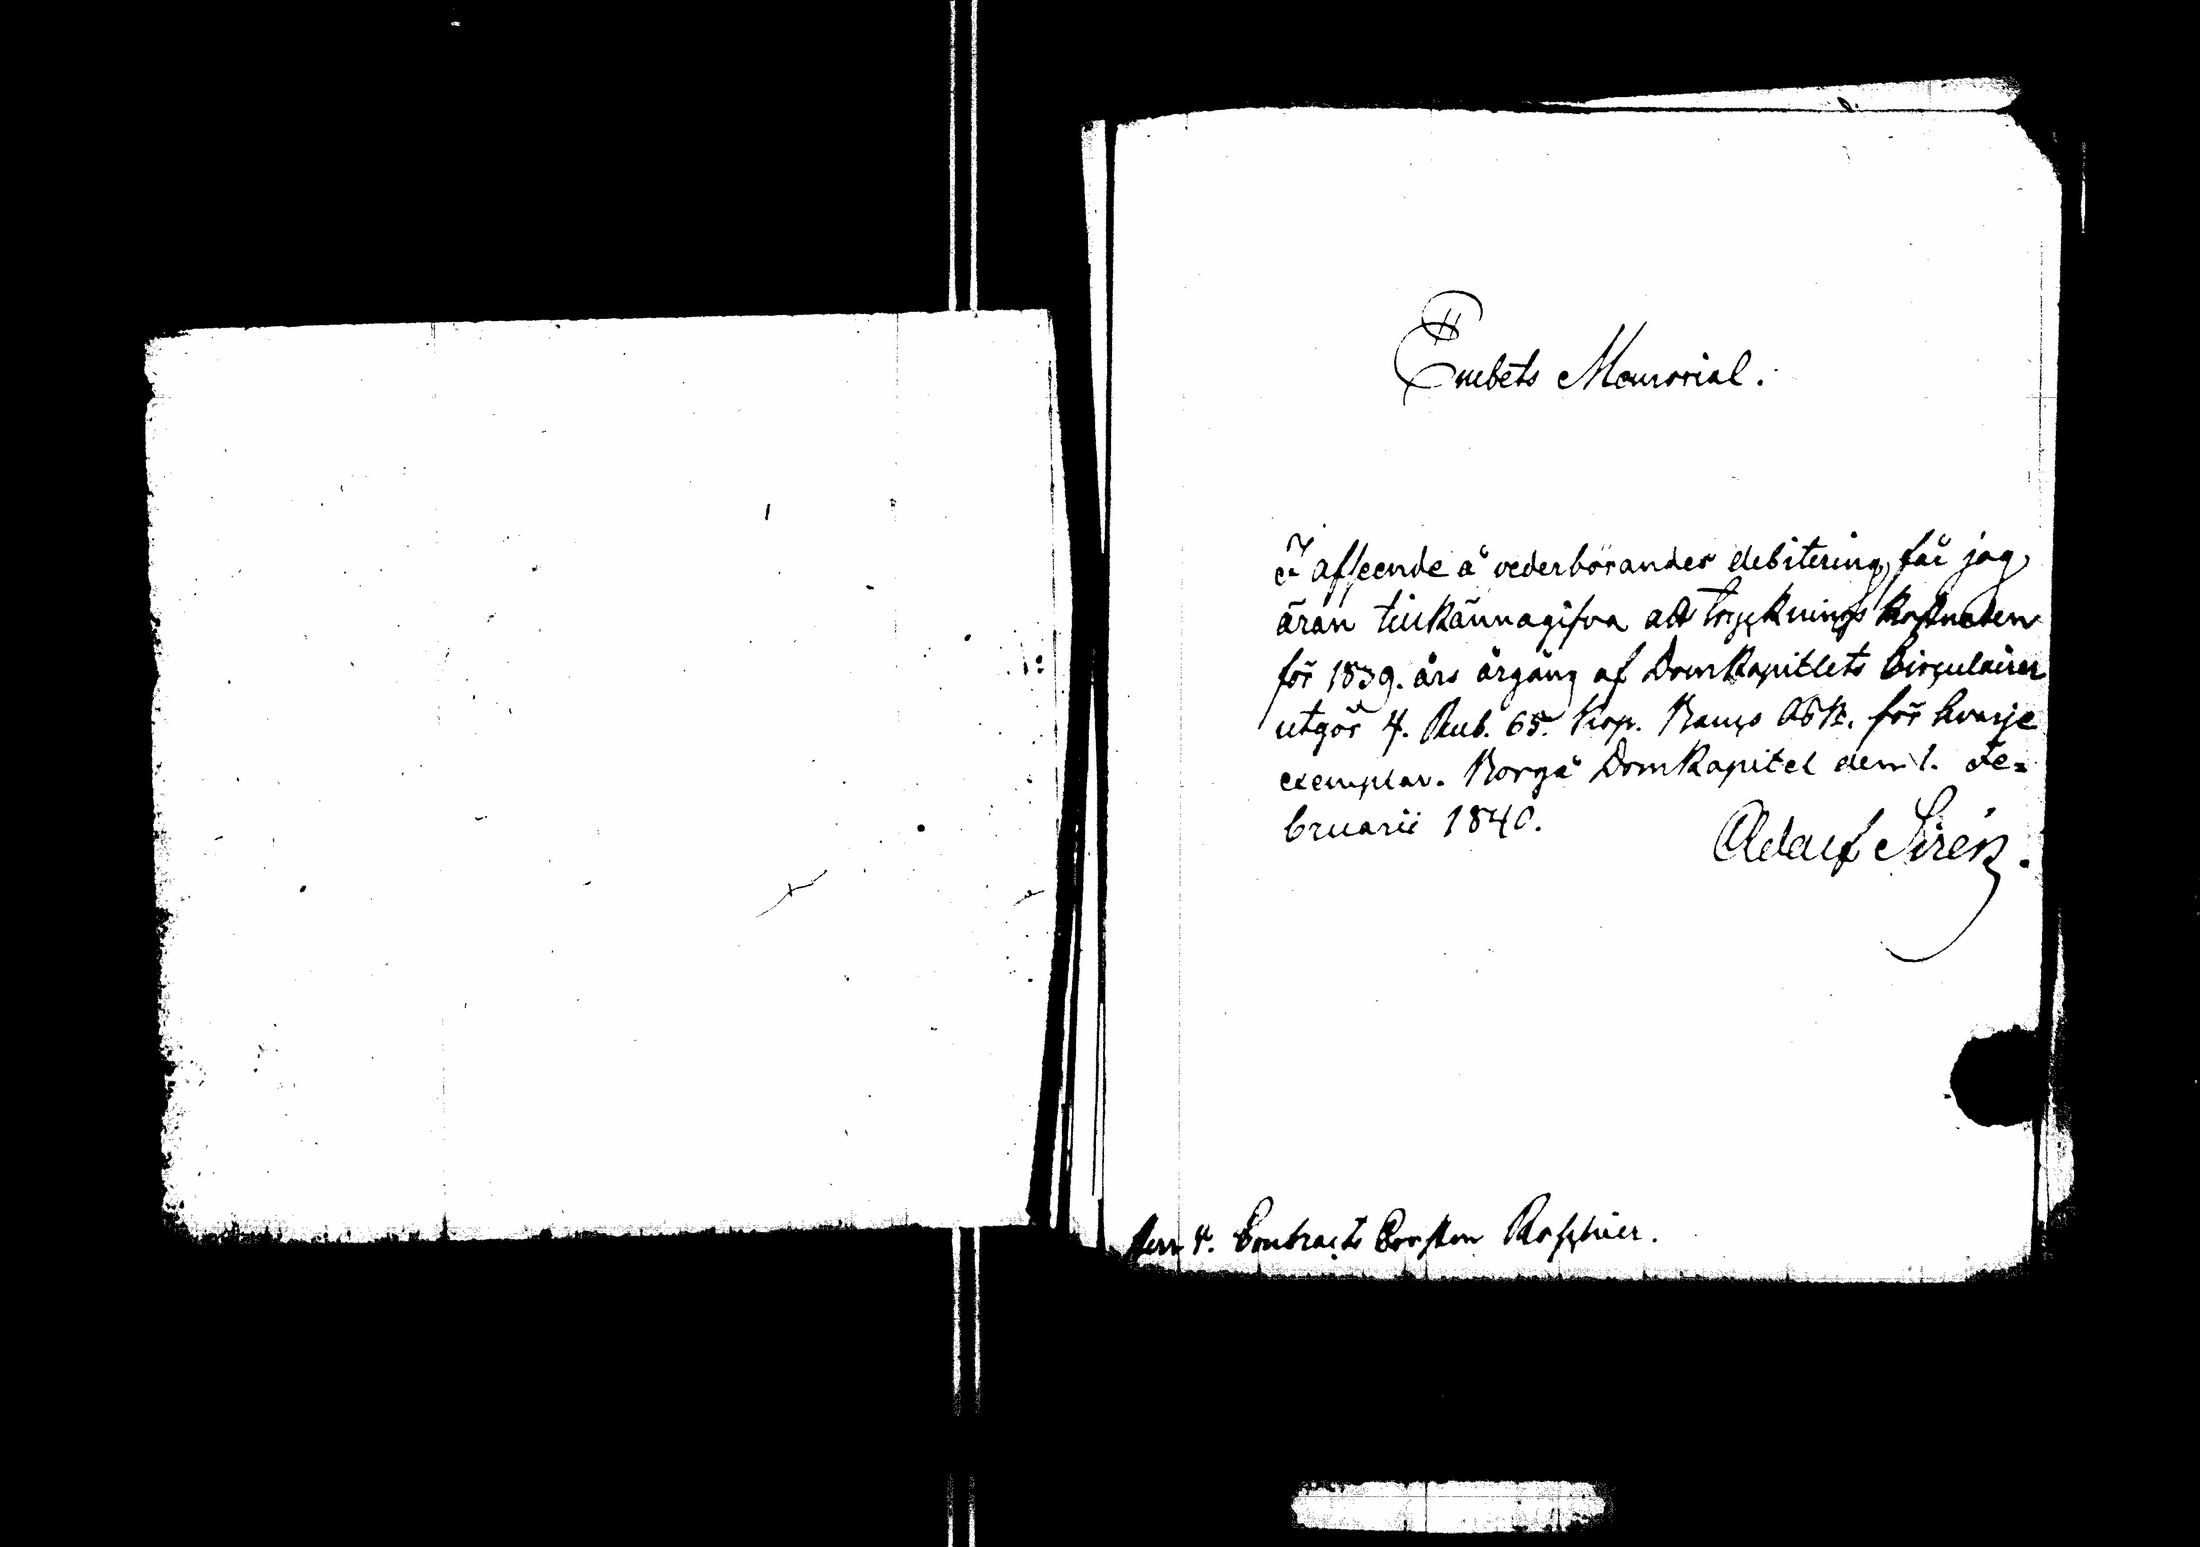 Embets Memorial.
I afseende å vederbörandes debitering får jag
äran tillkännagifva att trycknings kostnaden
för 1839. års årgång af DomKapitlets Circulairer
utgör 4. Rub. 65. Kop. Banco Ass. för hvarje
exemplar. Borgå DomKapitel den 1. Fe=
bruarii 1840.
Adolf Sirén.
Herr Contracts Prosten